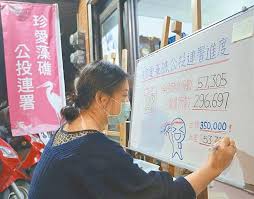 珍愛藻礁
公投連署
珍愛藻礁公投連署進度
57,305
296,697
350,000
53,